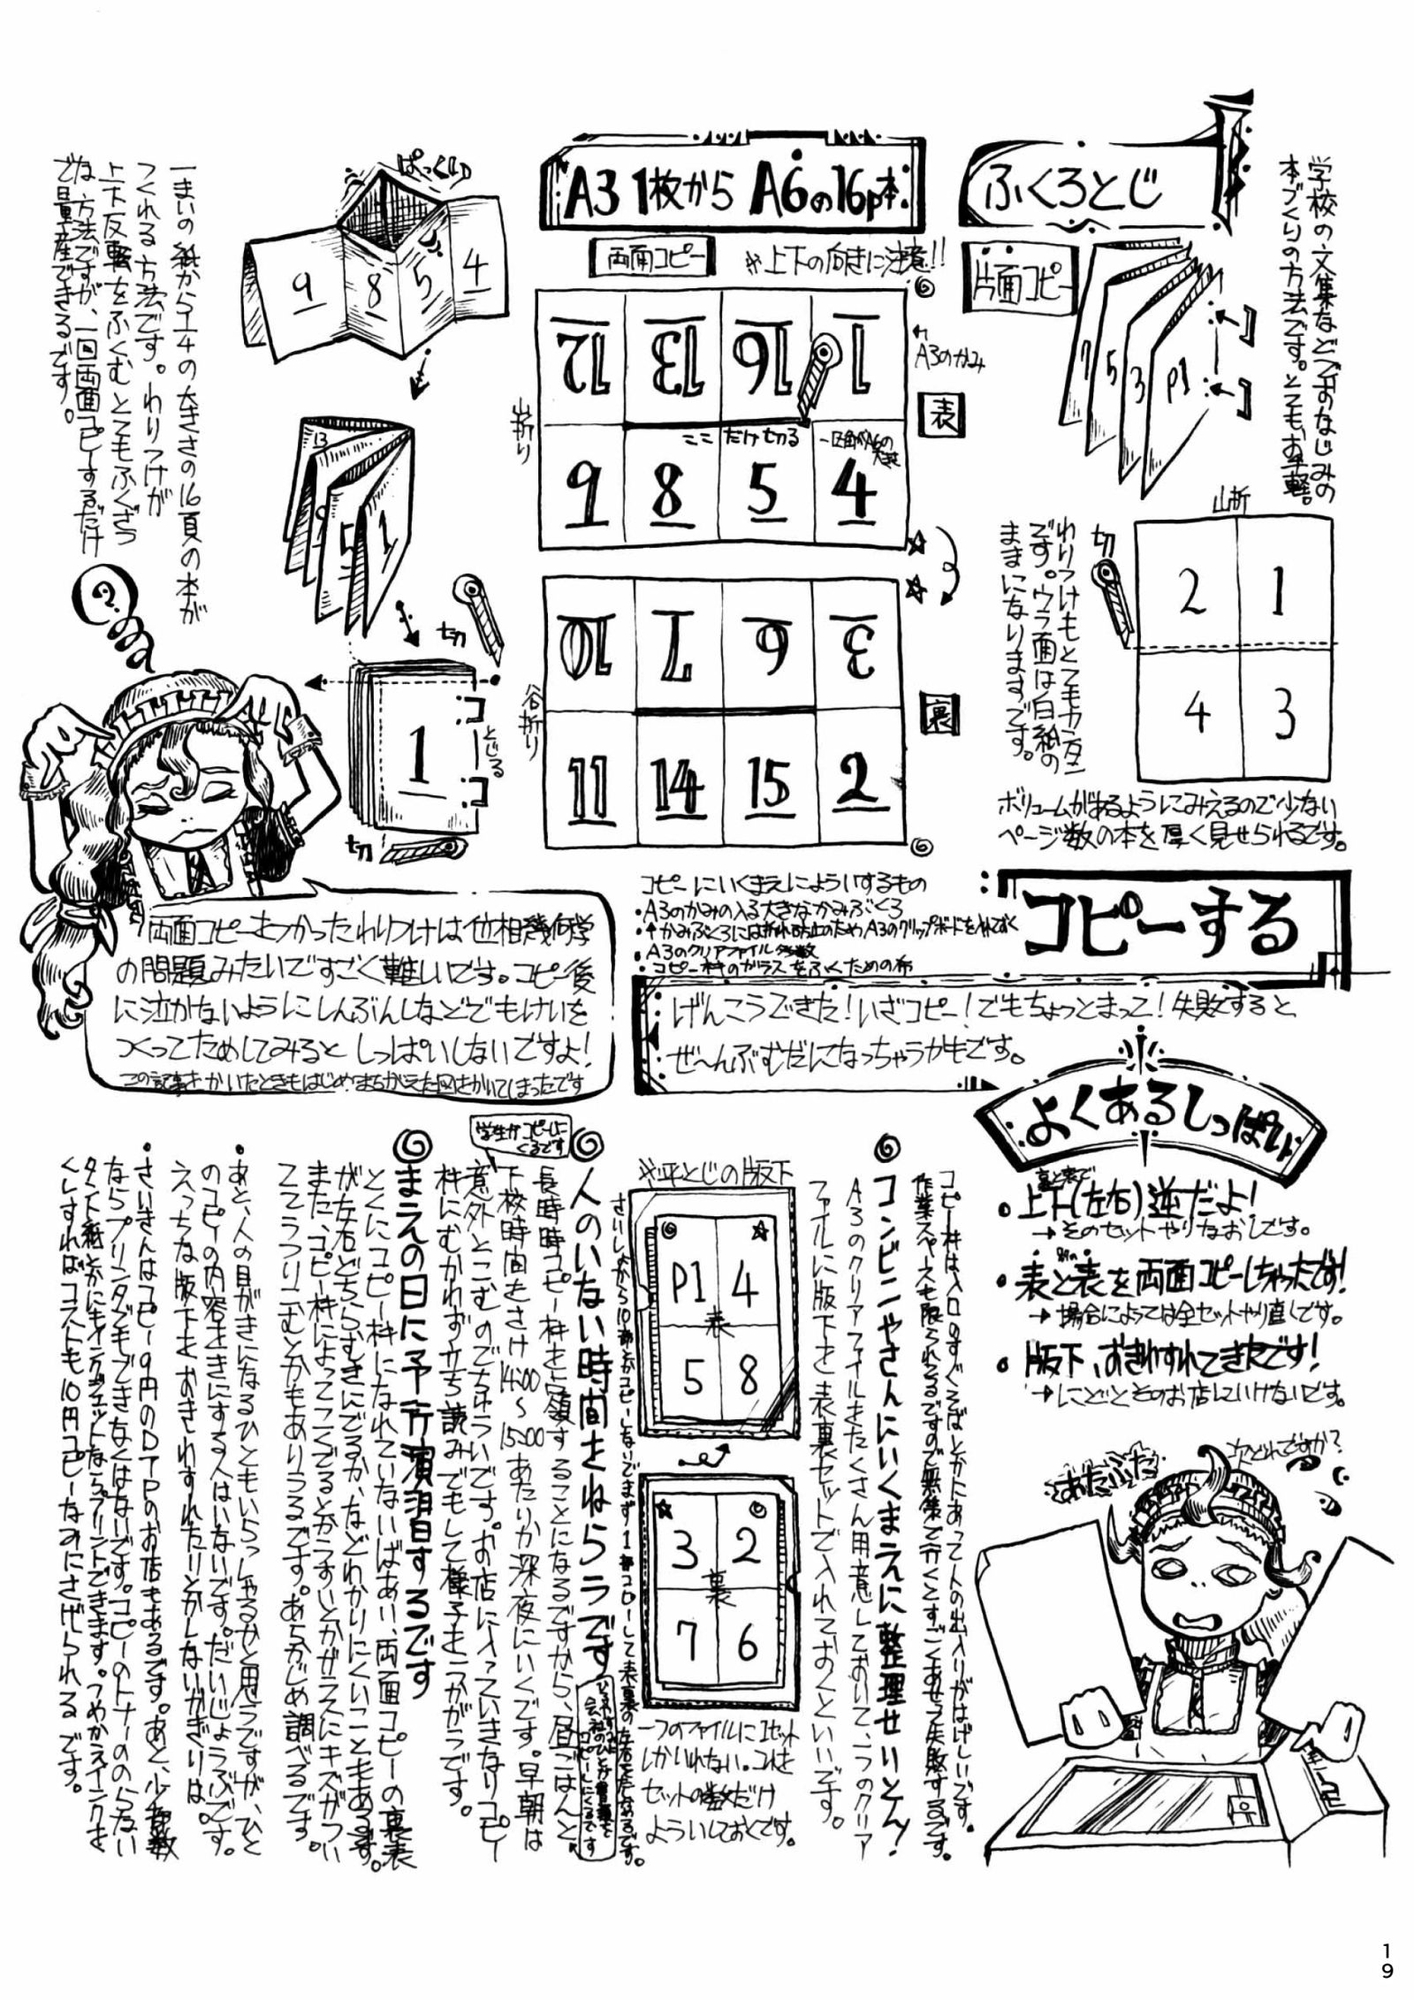 ふくろとじ
学校の文集などでおなじみの
本づくりの方法です。とてもお手軽。
片面コピー
7
5
3
P1
わりつけもとてもカンタン
です。ウラ面は白紙の
ままになりますです。
山折
切
2 1
4 3
ボリュームがあるようにみえるので少ない
ページ数の本を厚く見せられるです。
A3 1枚から A6の16p本
両面コピー
※上下の向きに注意!!
A3のかみ
表
12 13 16 1
ここだけ切る
一区画がA6の大きさ
9 8 5 4
山折り
裏
10 7 6 3
11 14 15 2
谷折り
ぱっくり
9 8 5 4
13
9
5
1
切
1
とじる
切
一まいの紙から1/4の大きさの16頁の本が
つくれる方法です。わりつけが
上下反転をふくむとてもふくざつ
な方法ですが、一回両面コピーするだけ
で量産できるです。
?
両面コピーをつかったわりつけは位相幾何学
の問題みたいですごく難しいです。コピー後
に泣かないようにしんぶんしなどでもけいを
つくってためしてみると しっぱいしないですよ!
この記事をかいたときもはじめまちがえた図をかいてしまったです
コピーする
コピーにいくまえによういするもの
・A3のかみの入る大きなかみぶくろ
・↑かみぶくろには折れ防止のためA3のクリップボードを入れておく
・A3のクリアファイル多数
・コピー機のガラスをふくための布
げんこうできた!いざコピー!でもちょっとまって!失敗すると
ぜ〜んぶむだになっちゃうかもです。
よくあるしっぱい
裏と表で
・上下(左右)逆だよ!
→そのセットやりなおしです。
・表と別の表を両面コピーしちゃったです!
→場合によっては全セットやり直しです。
・版下、おきわすれてきたです!
→にどとそのお店にいけないです。
あたふた
次どれですか?
コンビニやさんにいくまえに整理せいとん!
コピー機は入口のすぐそばとかにあって人の出入りがはげしいです。
作業スペースも限られてるですので無策で行くとすごくあせって失敗するです。
A3のクリアファイルをたくさん用意しておいて、一つのクリア
ファイルに版下を表裏セットで入れておくといいです。
※平とじの版下
P1 4
表
5 8
3 2
裏
7 6
一つのファイルに1セット
しかいれない。これを
セットの数だけ
よういしておくです。
さいしょから10部とかコピーしないでまず1部コピーして表裏の左右をたしかめるです。
人のいない時間をねらうです
長時間コピー機を占領することになるですから、昼ごはんと
下校時間をさけ14:00〜15:00あたりか深夜にいくです。早朝は
意外とこむのでちゅういです。お店に入っていきなりコピー
機にむかわず立ち読みでもして様子をうかがうです。
学生がコピーしにくるです
まえの日に予行演習するです
とくにコピー機になれていないばあい、両面コピーの裏表
が左右どちらむきにでるか、などわかりにくいこともあるです。
また、コピー機によってこくでるとかうすいとかガラスにキズがつい
ててうつりこむとかもありうるです。あらかじめ調べるです。
・あと、人の目がきになるひともいらっしゃるかと思うですが、ひと
のコピーの内容をきにする人はいないです。だいじょうぶです。
えっちな版下をおきわすれたりとかしないかぎりは。
・さいきんはコピー9円のDTPのお店もあるです。あと、少部数
ならプリンタでもできなくはないです。コピーのトナーののらない
タント紙とかにもインクジェットならプリントできます。つめかえインクを
くしすればコストも10円コピーなみにさげられるです。
19